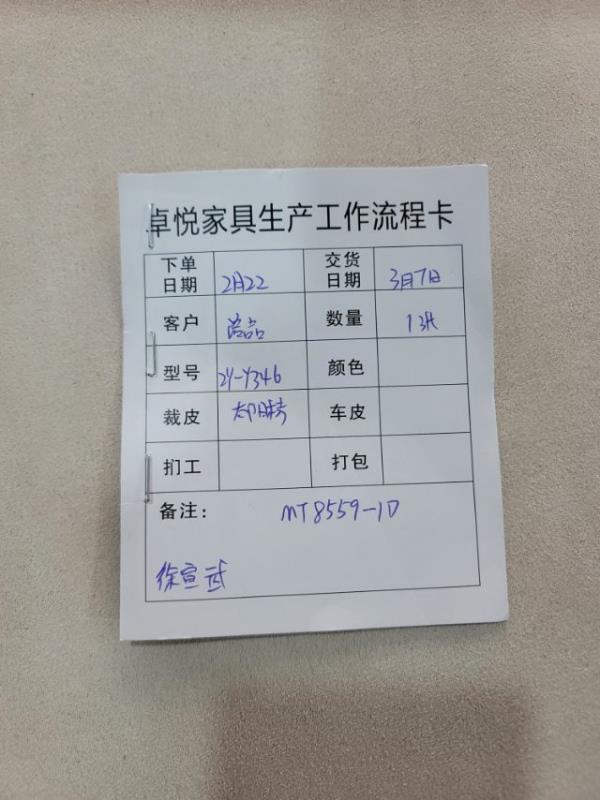 卓悦家具生产工作流程卡
下单日期 2月22 交货日期 3月7日
客户 数量 1张
型号 ZY-Y346 颜色
裁皮 车皮
扪工 打包
备注: MT8559-1D
徐宣武